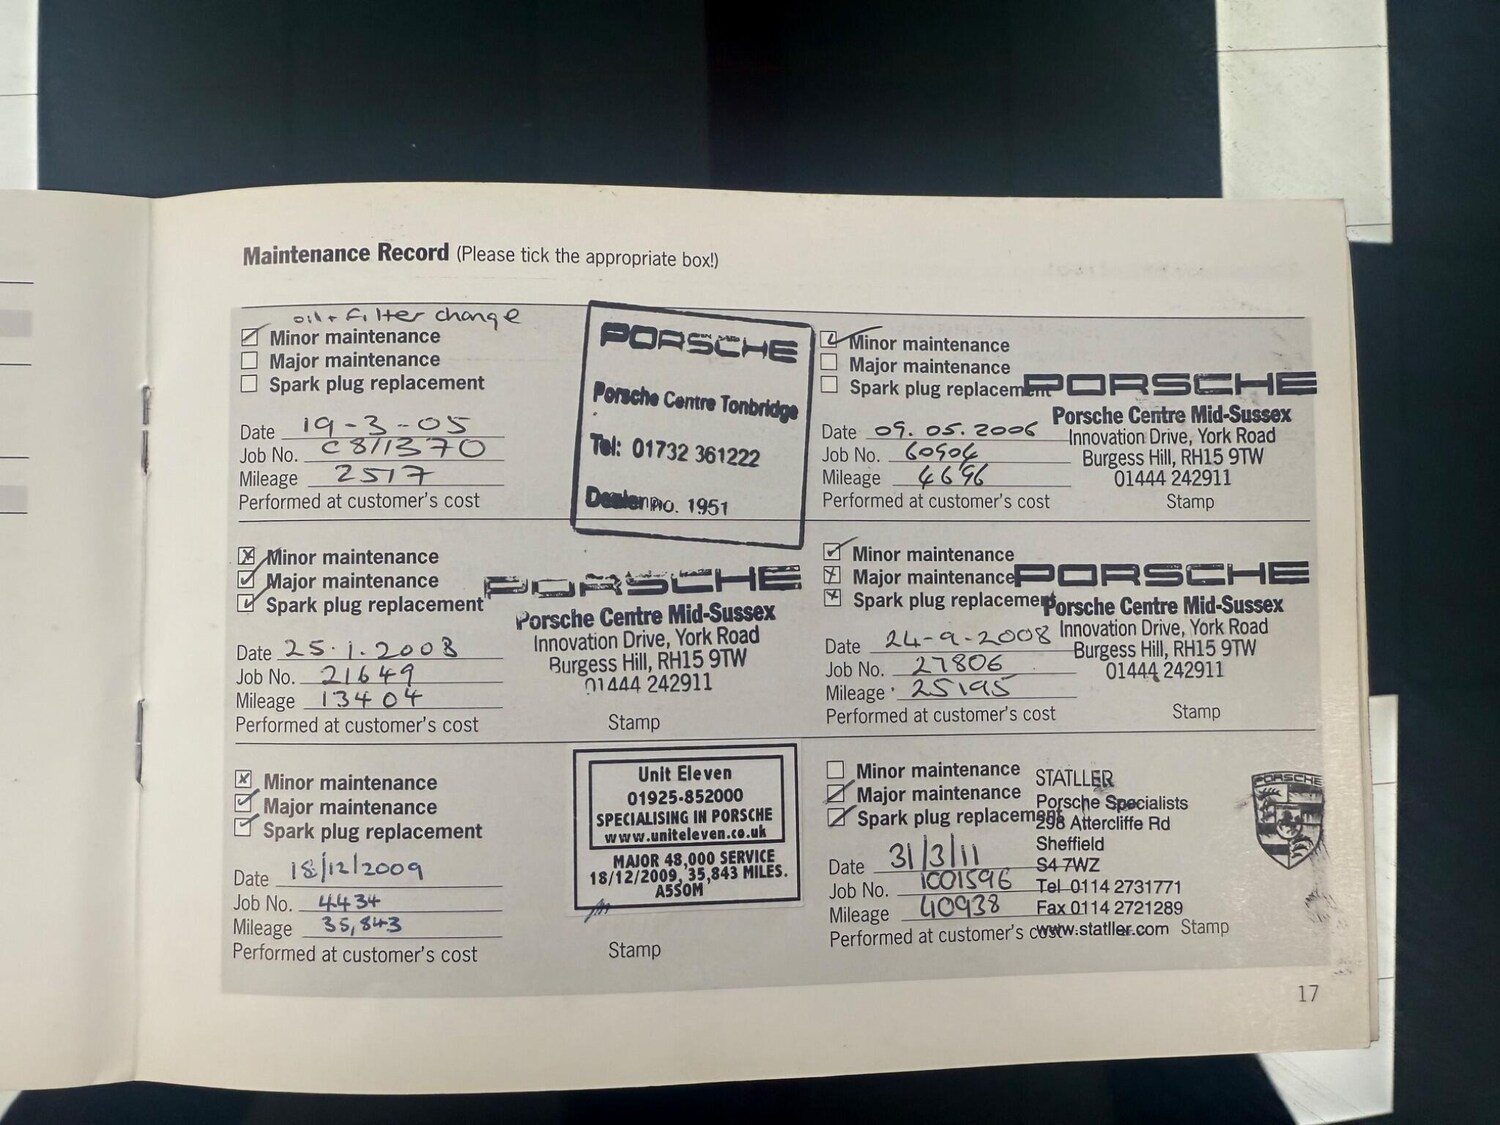 Maintenance Record (Please tick the appropriate box!)
oil + filter change
Minor maintenance
Major maintenance
Spark plug replacement
Date 19-3-05
Job No. C8/1370
Mileage 2517
Performed at customer's cost
PORSCHE
Porsche Centre Tonbridge
Tel: 01732 361222
Dealer no. 1951
Minor maintenance
Major maintenance
Spark plug replacement
Date 09.05.2006
Job No. 60904
Mileage 4696
Performed at customer's cost
PORSCHE
Porsche Centre Mid-Sussex
Innovation Drive, York Road
Burgess Hill, RH15 9TW
01444 242911
Stamp
Minor maintenance
Major maintenance
Spark plug replacement
Date 25.1.2008
Job No. 21649
Mileage 13404
Performed at customer's cost
PORSCHE
Porsche Centre Mid-Sussex
Innovation Drive, York Road
Burgess Hill, RH15 9TW
01444 242911
Stamp
Minor maintenance
Major maintenance
Spark plug replacement
Date 24-9-2008
Job No. 27806
Mileage 25195
Performed at customer's cost
PORSCHE
Porsche Centre Mid-Sussex
Innovation Drive, York Road
Burgess Hill, RH15 9TW
01444 242911
Stamp
Minor maintenance
Major maintenance
Spark plug replacement
Date 18/12/2009
Job No. 4434
Mileage 35,843
Performed at customer's cost
Unit Eleven
01925-852000
SPECIALISING IN PORSCHE
www.uniteleven.co.uk
MAJOR 48,000 SERVICE
18/12/2009, 35,843 MILES.
A5SOM
Stamp
Minor maintenance
Major maintenance
Spark plug replacement
Date 31/3/11
Job No. 1001596
Mileage 40938
Performed at customer's cost
STATLLER
Porsche Specialists
298 Attercliffe Rd
Sheffield
S4 7WZ
Tel 0114 2731771
Fax 0114 2721289
www.statller.com
Stamp
PORSCHE
17